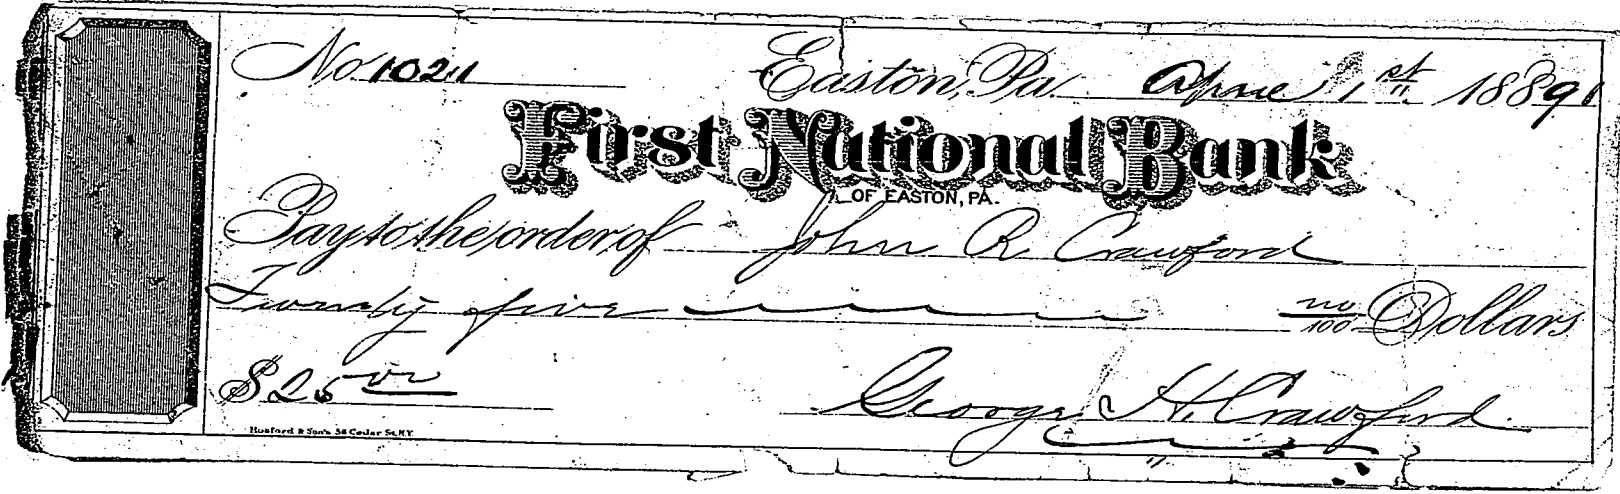 No. 1021 Easton, Pa. April 1st 1891
First National Bank
OF EASTON, PA.
Pay to the order of John R Crawford
Twenty five no/100 Dollars
$25 00 George H. Crawford
Hosford & Son's 56 Cedar St. N.Y.